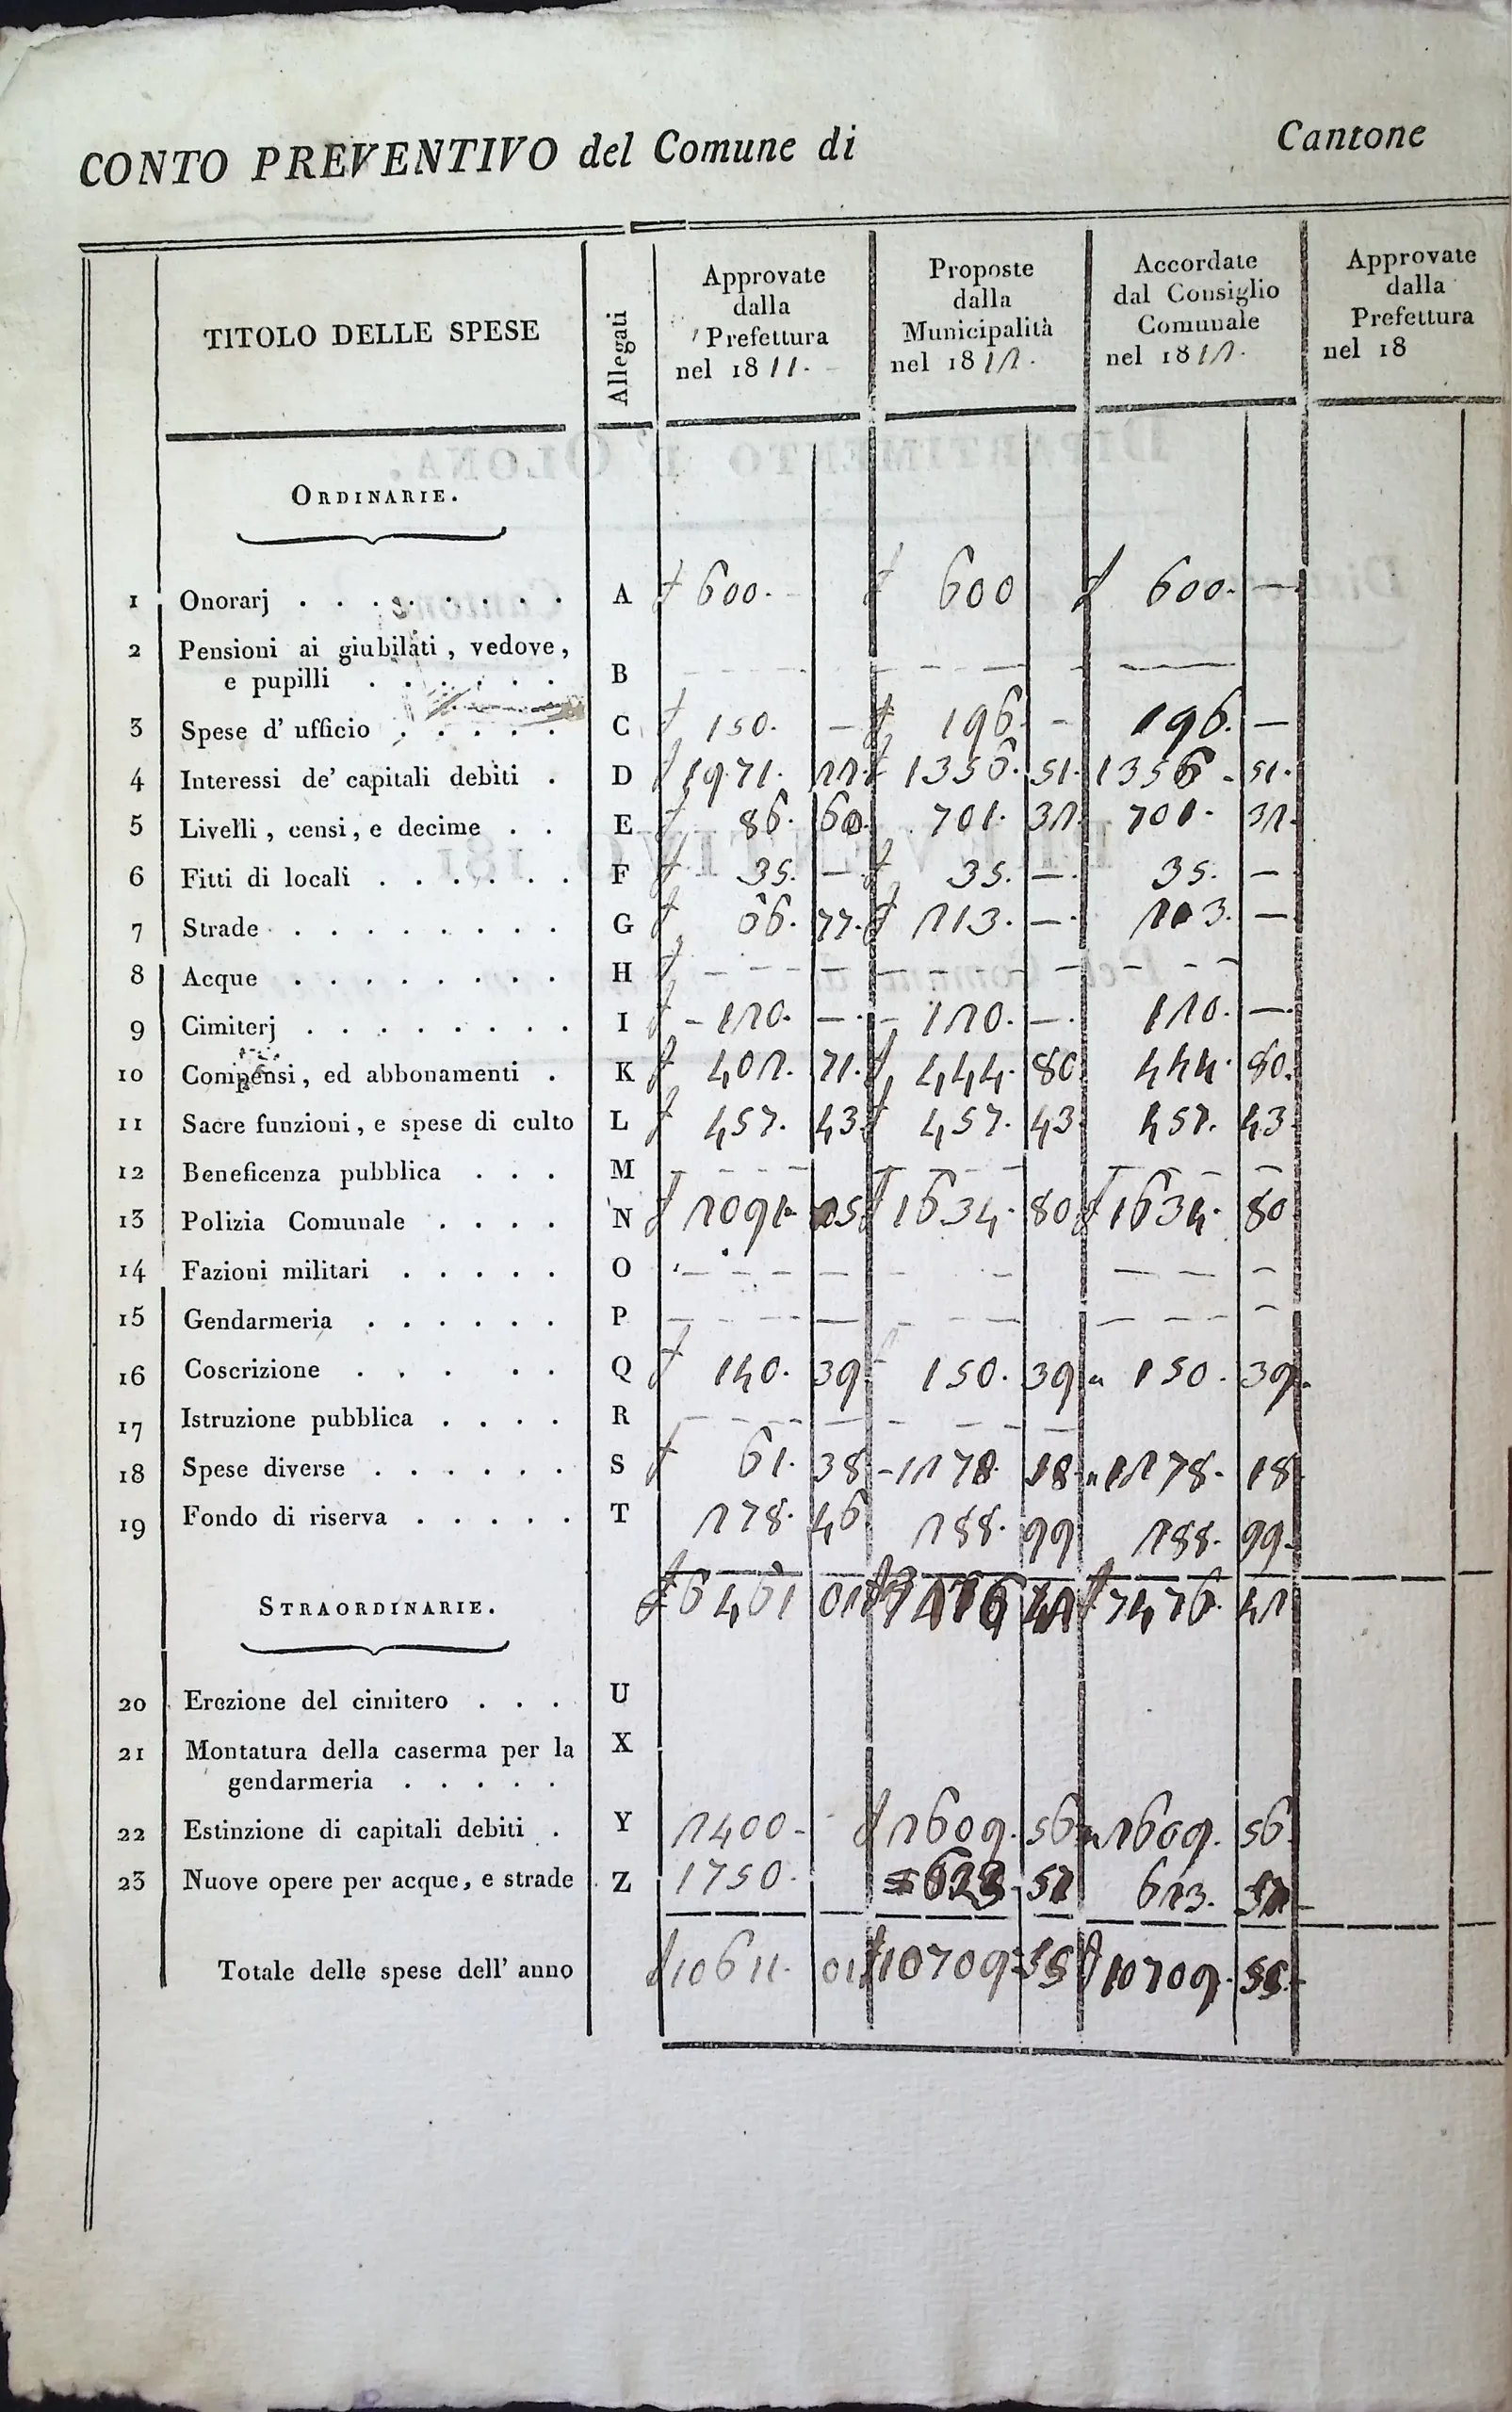 CONTO PREVENTIVO del Comune di Cantone
TITOLO DELLE SPESE
Allegati
Approvate
dalla
Prefettura
nel 1811.
Proposte
dalla
Municipalità
nel 1812.
Accordate
dal Consiglio
Comunale
nel 1812.
Approvate
dalla
Prefettura
nel 18
ORDINARIE.
1 Onorarj . . . . . . . . A £ 600. £ 600 £ 600. —
2 Pensioni ai giubilati, vedove,
e pupilli . . . . . . B — — — — — — — —
3 Spese d' ufficio . . . . . C £ 150. — £ 196. - 196. —
4 Interessi de' capitali debiti . D £ 1971. 22. £ 1356. 51. 1356. 51.
5 Livelli, censi, e decime . . E £ 86. 60. 701. 32. 701. 32.
6 Fitti di locali . . . . . . F £ 35. — £ 35. — 35. —
7 Strade . . . . . . . . . G £ 66. 77. £ 213. — 213. —
8 Acque . . . . . . . . H £ — — — — — — — — —
9 Cimiterj . . . . . . . . I £ - 120. — - 120. — 120. —
10 Compensi, ed abbonamenti . K £ 402. 71. £ 444. 80. 444. 80.
11 Sacre funzioni, e spese di culto L £ 457. 43. £ 457. 43. 457. 43.
12 Beneficenza pubblica . . . M — — — — — — — —
13 Polizia Comunale . . . . N £ 2091. 05. £ 1634. 80. £ 1634. 80
14 Fazioni militari . . . . . O — — — — — — — —
15 Gendarmeria . . . . . . P — — — — — — — —
16 Coscrizione . . . . . Q £ 140. 39. 150. 39 " 150. 39.
17 Istruzione pubblica . . . . R — — — — — — —
18 Spese diverse . . . . . . S £ 61. 38 - 1278. 18. " 1278. 18
19 Fondo di riserva . . . . . T 278. 46 288. 99 288. 99.
£ 6461 01 £ 7476 42 £ 7476. 42
STRAORDINARIE.
20 Erezione del cimitero . . . U
21 Montatura della caserma per la X
gendarmeria . . . . .
22 Estinzione di capitali debiti . Y 2400. £ 2609. 56 " 2609. 56.
23 Nuove opere per acque, e strade . Z 1750. = 623 57 623. 57
Totale delle spese dell' anno £ 10611. 01 £ 10709. 55 £ 10709. 55.